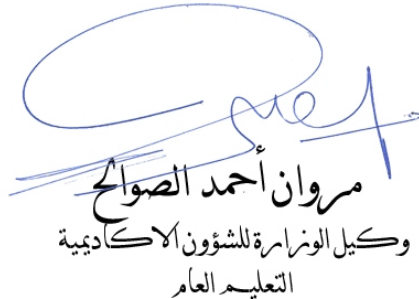 مروان أحمد الصوالح
وكيل الوزارة للشؤون الاكاديمية
التعليم العام